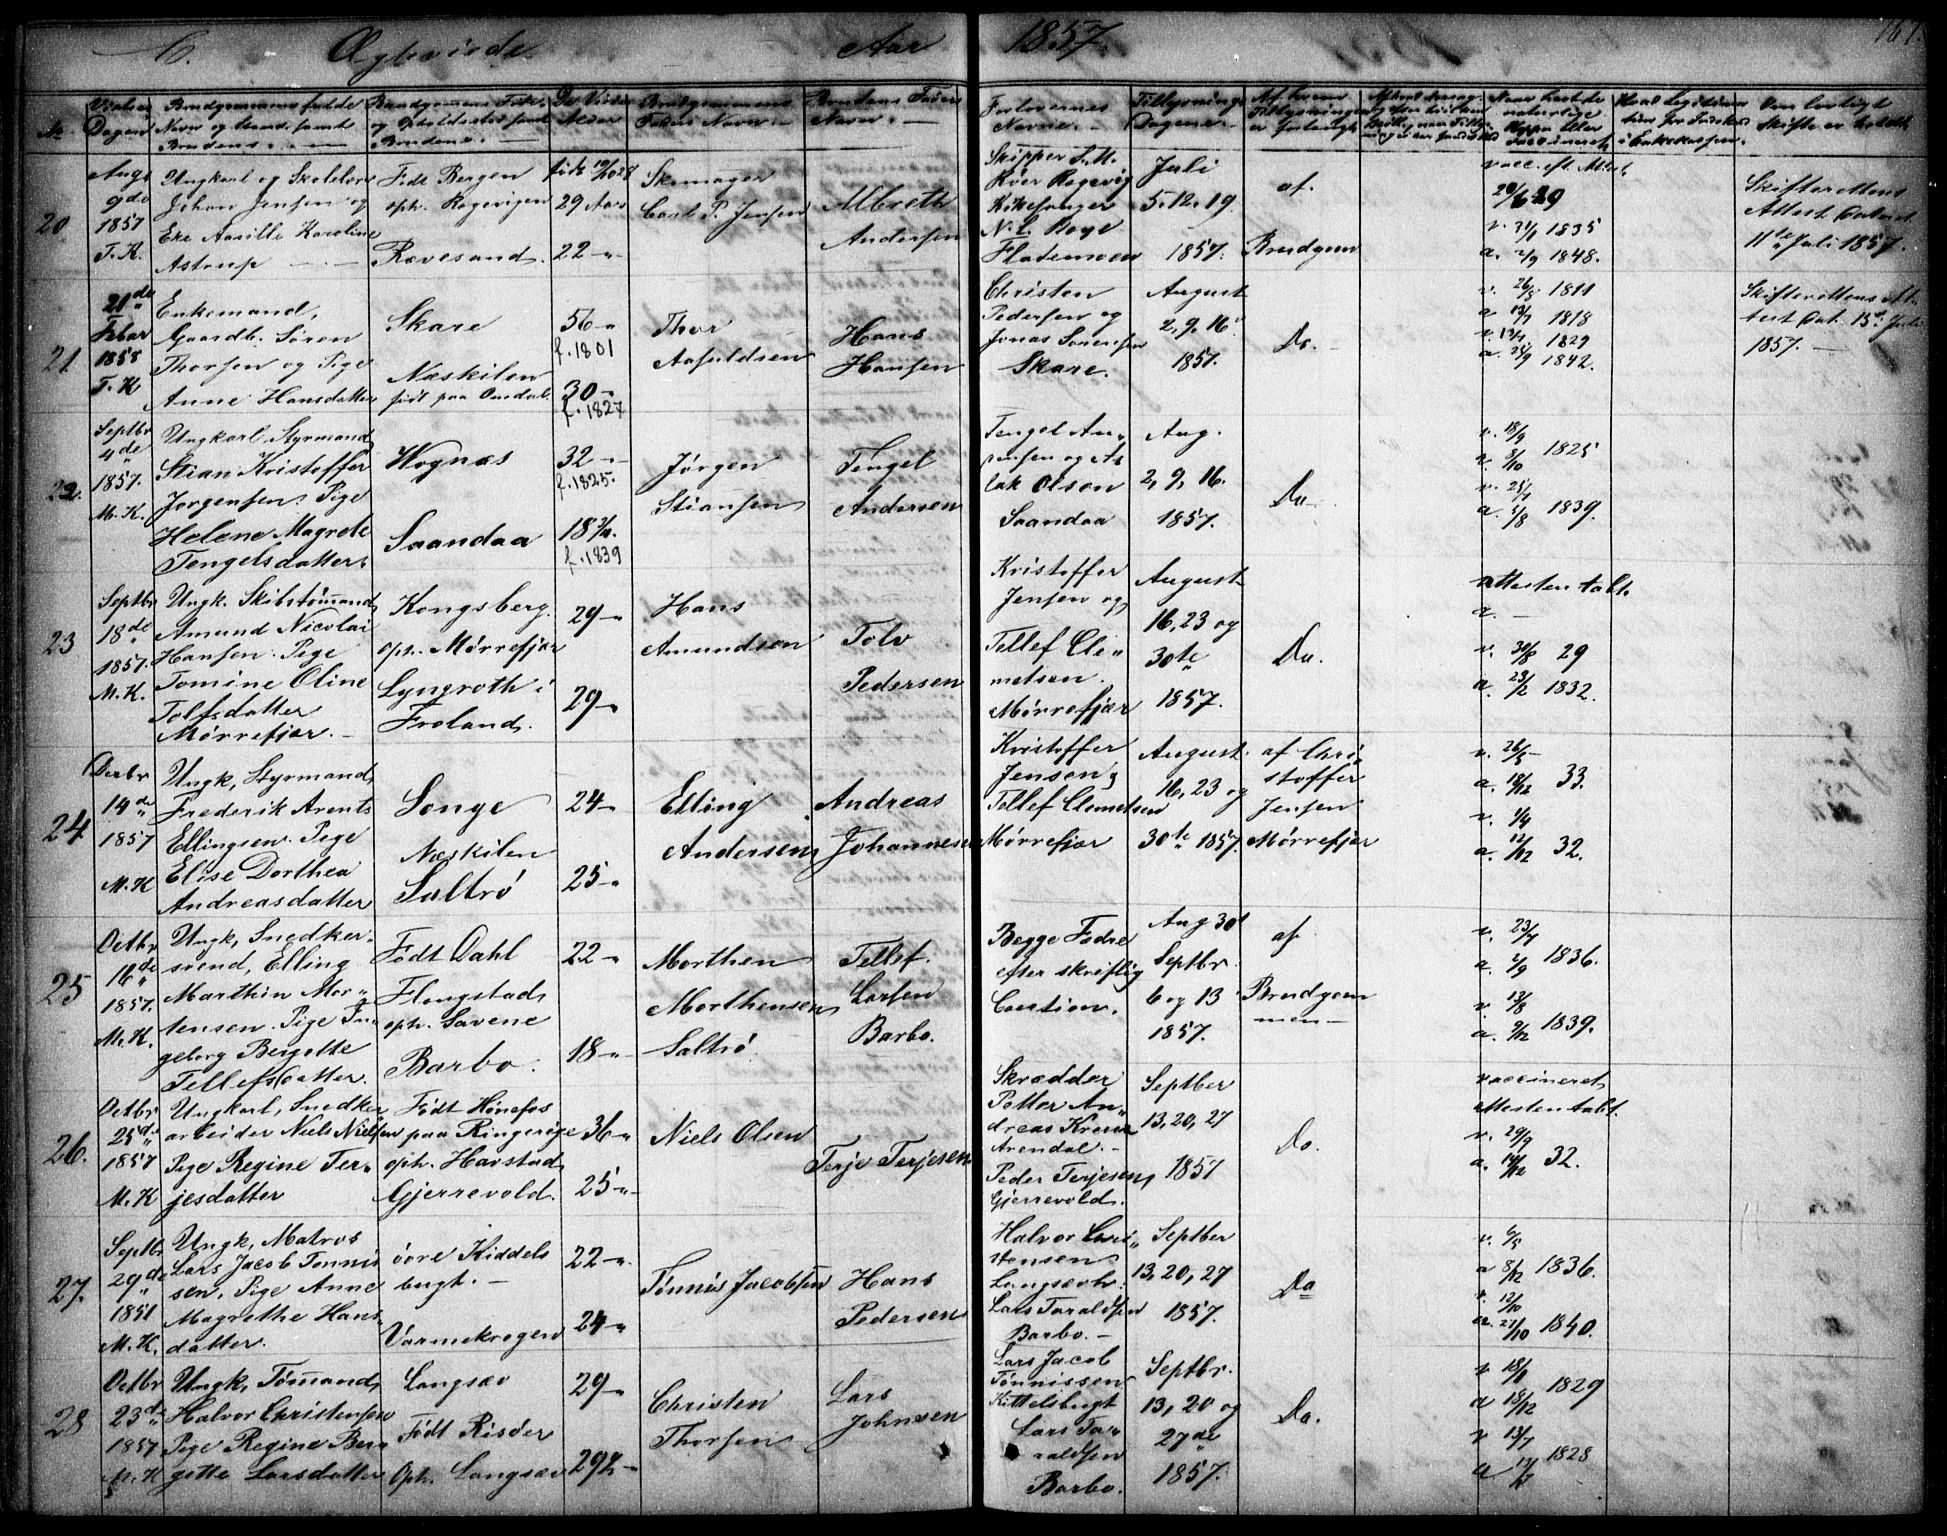 C. Ægteviede Aar 1857. 167.
No
Vielses Dagen
Brudgommens fulde Navn og Stand, samt Brudens.
Brudgommens Føde- og Opholdssted samt Brudens.
De Viedes Alder
Brudgommens Faders Navn.
Brudens Faders Navn.
Forlovernes Navne.
Tillysnings Dagene.
Af hvem Tillysningen er forlangt
Om lovligt Skifte er holdt
20
Augs 9de 1857 T. K.
Ungkarl og Skolelærer
Johan Jensen og
Eke Aasille Karoline
Astrup
Født Bergen
oph. Rogevigen
Rævesand.
29 Aar
22 "
Skomager
Carl P. Jensen
Albreth
Andersen
Skipper S. M.
Røer Rogevig
N. L. Boye
Flademoen
Juli
5. 12. 19.
1857.
af.
Brudgom
vacc. eft. Attest.
v. 1835
a. 2/9 1848.
Skifterettens
Attest Dateret
11te Juli 1857.
21.
21de Febar 1858 T. K
Enkemand,
Gaardb. Søren
Thorsen og Pige
Anne Hansdatter
Skare
Næskilen
født paa Omdal.
56 "
f. 1801
30 "
f. 1827
Thor
Aasuldsen
Hans
Hansen
Christen
Pedersen og
Jonas Sørensen
Skare.
August
2, 9, 16
1857.
Do.
v. 26/8 1811
a 1818
v. 1829
a. 1842.
Skifterettens At-
test Dat. 15de Juli
1857.
22.
Septbr 4de 1857. M. K.
Ungkarl Styrmand
Stian Kristoffer
Jørgensen, Pige
Helene Magrete
Tengelsdatter.
Hognæs
Saandaa
32
f. 1825.
18 3/4.
f. 1839
Jørgen
Stiansen
Tengel
Andersen
Tengel An-
densen og As
lak Olsen
Saandaa
Aug.
2, 9, 16.
1857.
Do.
v. 18/9
v. 8/10 1825
v. 25/1
a. 5/8 1839.
23
Septbr 18de 1857. M. K.
Ungk. Skibstømmand
Amund Nicolai
Hansen. Pige
Tomine Oline
Tolfsdatter
Mørrefjær.
Kongsberg
oph. Mørrefjær
Lyngroth i
Froland.
29 "
29 "
Hans
Amundsen
Tolv
Pedersen
Kristoffer
Jensen og
Tellef Cle-
metsen.
Mørrefjær
August
16, 23 og
30te
1857.
Do.
Attesten tabt.
a. —
v. 30/8 29
a. 23/2 1832.
24
Decbr 14de 1857 M. K
Ungk, Styrmand,
Frederik Arents
Ellingsen. Pige
Elise Dorthea
Andreasdatter
Songe
Næskilen
Saltrø
24 "
25 "
Elling
Andersen
Andreas
Johannesen
Kristoffer
Jensen g
Tellef Clemetsen
Mørrefjær
August
16, 23 og
30te 1857.
af Chri-
stoffer
Jensen
Mørrefjær
v. 26/5
a. 18/12 33.
v. 1/4
a. 12/12 32.
25
Octbr 16de 1857. M. K.
Ungk, Snedker-
svend, Elling
Marthin Mor-
tensen. Pige In-
geborg Bergette
Tellefsdatter.
Født Dahl
Flangstad
oph. Savene
Barbo.
22 "
18 "
Morthen
Morthensen
Saltrø
Tellef
Larsen
Barbo.
Begge Fædre
efter skriftlig
Caution.
Aug 30
Septbr.
6 og 13
1857.
af
Brudgom
men
v. 23/7
a. 2/9 1836.
v. 13/8
a. 9/12 1839.
26.
Octbr 25de 1857 M. K
Ungkarl, Snedker
arbeider Niels Nielsen
Pige Regine Ter-
jesdatter
Født Hønefos
paa Ringerige
oph. Havstad
Gjerrevold.
36 "
25 "
Niels Olsen
Terje Terjesen
Skrædder
Petter An-
dreas
Arendal.
Peder Terjesen,
Gjerrevold.
Septber
13, 20, 27
1857
Do.
vaccineret,
Attesten tabt.
v. 29/9
a. 14/12 32.
27.
Septbr 29de 1851 M. K.
Ungk, Matros
Lars Jacob Tønnis
sen, Pige Anne
Magrethe Hans-
datter.
øvre Kiddels
bugt.
Varmekrogen
22 "
24 "
Tønnis Jacobsen
Hans
Pedersen
Halvor Chri-
stensen
Langsævh.
Lars Taraldsen
Barbo.
Septber
13, 20, 27
1857.
Do
v. 6/5
a 8/12 1836.
v. 12/10
a. 27/10 1840.
28
Octbr 23de 1857 M. K
Ungk, Tømand,
Halvor Christensen
Pige Regine Ber-
gette Larsdatter
Langsæv
Født Risøer
Oph. Langsæv
29 "
29 1/2
Christen
Thorsen
Lars
Johnsen
Lars Jacob
Tønnissen
Kittelsbugt
Lars Ta-
raldsen
Barbo.
Septbr.
13, 20 og
27de
1857.
Do.
v
a 18/12 1829
v 13/7
a 1828